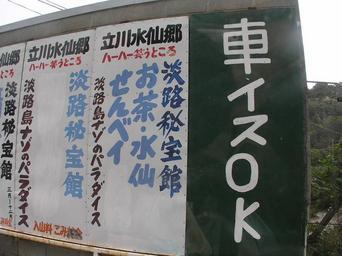 車イスOK
立川水仙郷
ハーハー笑うところ
淡路秘宝館
お茶・水仙
せんべイ
淡路島ナゾのパラダイス
立川水仙郷
ハーハー笑うところ
淡路秘宝館
淡路島ナゾのパラダイス
入山料
淡路秘宝館